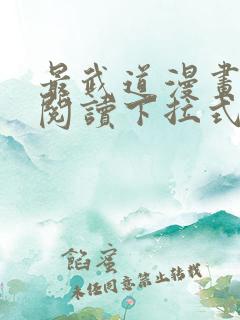 最武道漫畫
閱讀下拉式
餡蜜
未经同意禁止转载